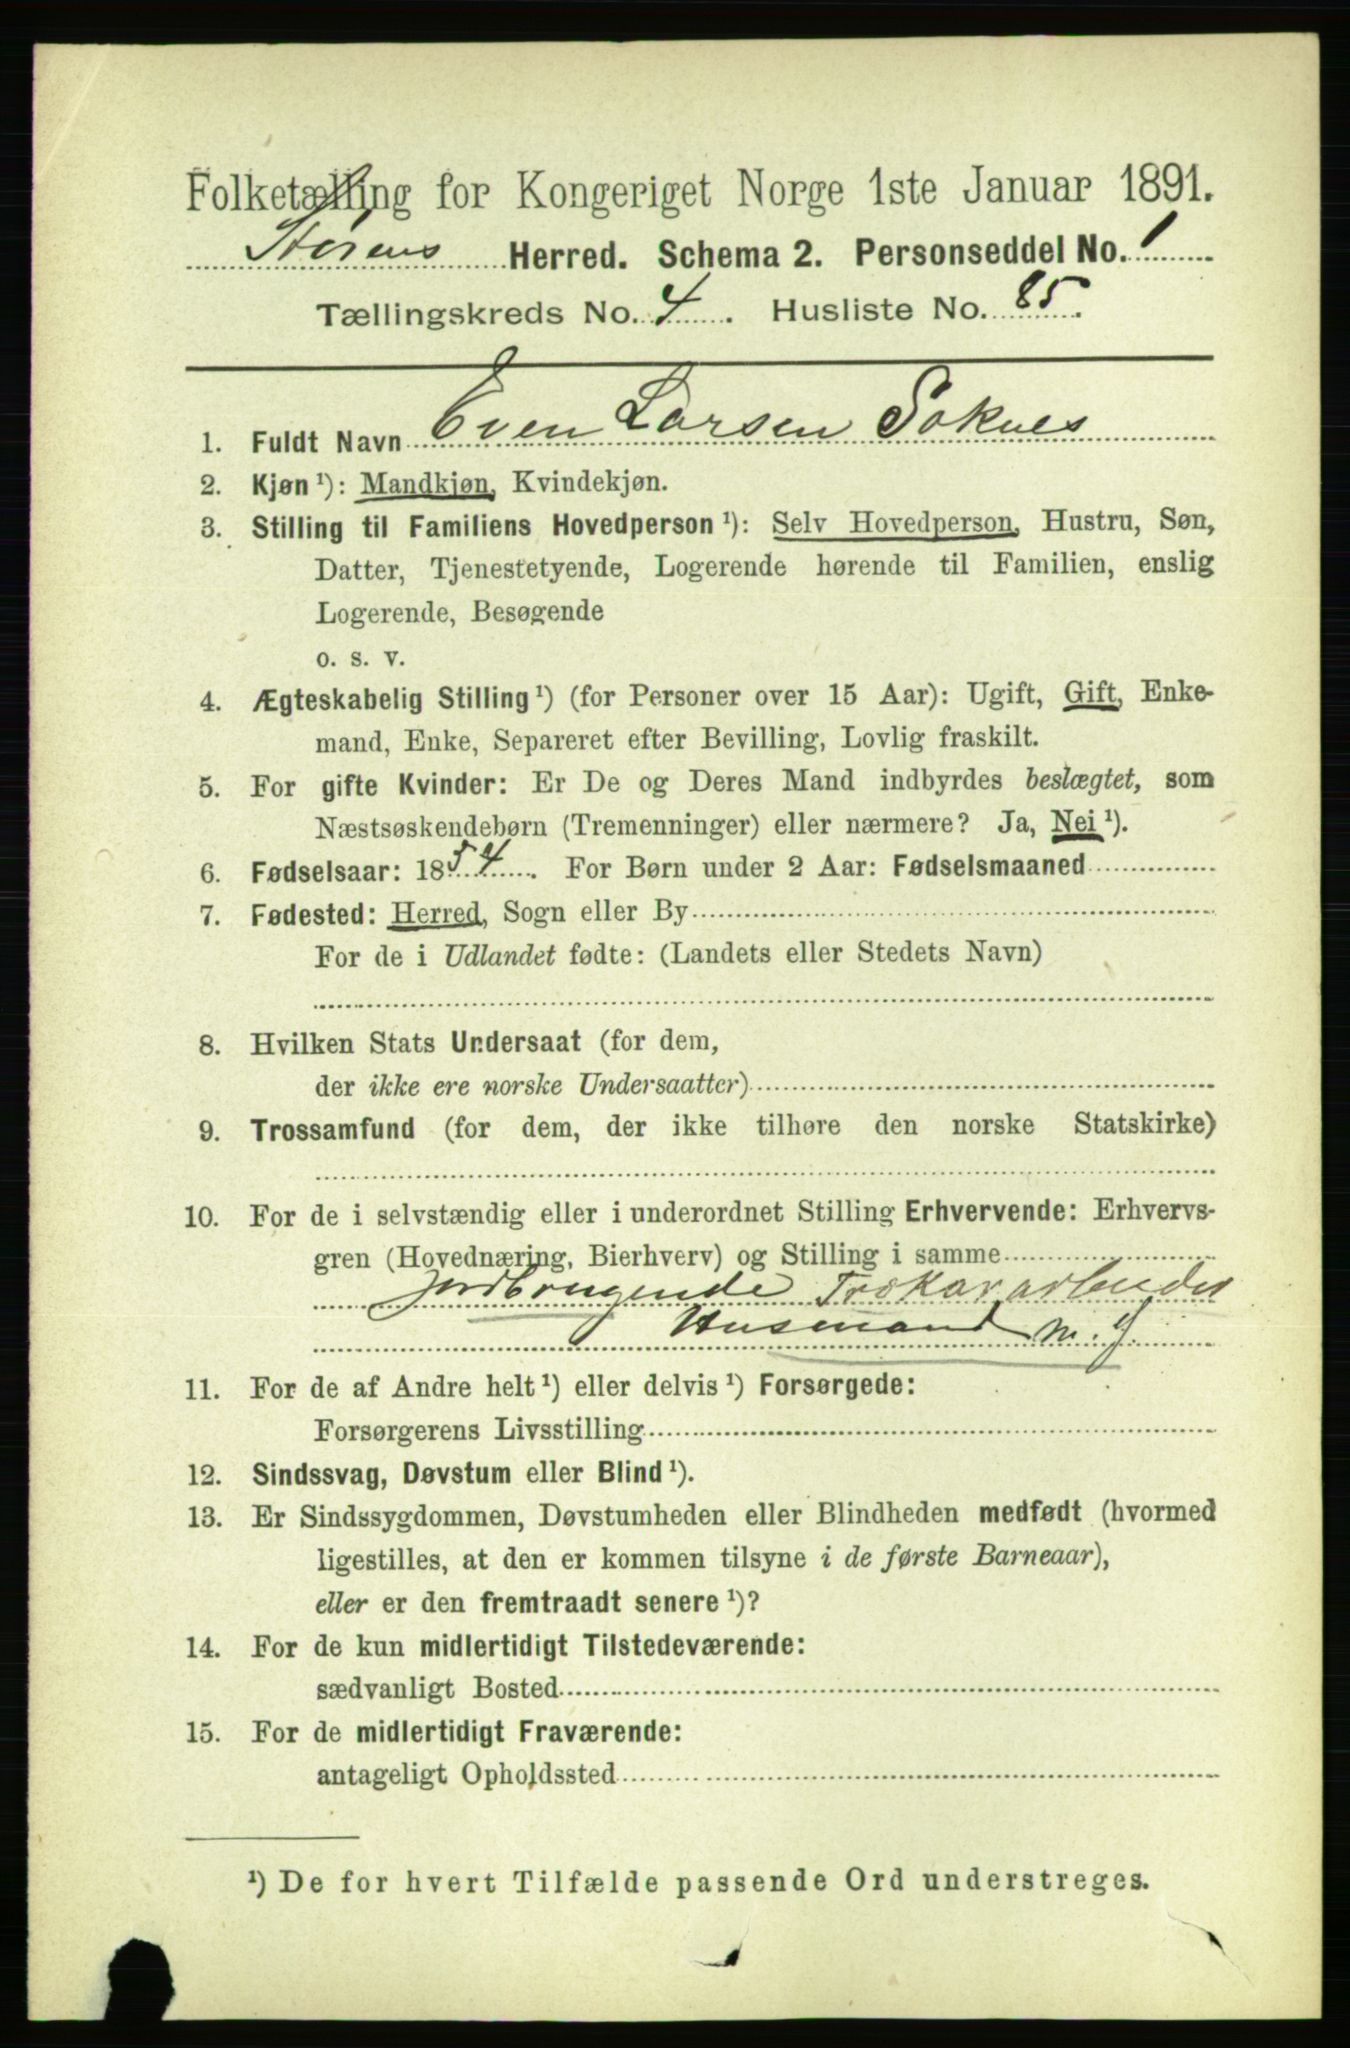 Folketælling for Kongeriget Norge 1ste Januar 1891.
Størens Herred. Schema 2. Personseddel No. 1
Tællingskreds No. 4. Husliste No. 85.
1. Fuldt Navn Even Larsen Soknes
2. Kjøn ¹): Mandkjøn, Kvindekjøn.
3. Stilling til Familiens Hovedperson ¹): Selv Hovedperson, Hustru, Søn,
Datter, Tjenestetyende, Logerende hørende til Familien, enslig
Logerende, Besøgende
o. s. v.
4. Ægteskabelig Stilling ¹) (for Personer over 15 Aar): Ugift, Gift, Enke-
mand, Enke, Separeret efter Bevilling, Lovlig fraskilt.
5. For gifte Kvinder: Er De og Deres Mand indbyrdes beslægtet, som
Næstsøskendebørn (Tremenninger) eller nærmere? Ja, Nei ¹).
6. Fødselsaar: 1854. For Børn under 2 Aar: Fødselsmaaned
7. Fødested: Herred, Sogn eller By
For de i Udlandet fødte: (Landets eller Stedets Navn)
8. Hvilken Stats Undersaat (for dem,
der ikke ere norske Undersaatter)
9. Trossamfund (for dem, der ikke tilhøre den norske Statskirke)
10. For de i selvstændig eller i underordnet Stilling Erhvervende: Erhvervs-
gren (Hovednæring, Bierhverv) og Stilling i samme
Jordbrugende
Husmand m. J.
11. For de af Andre helt ¹) eller delvis ¹) Forsørgede:
Forsørgerens Livsstilling
12. Sindssvag, Døvstum eller Blind ¹).
13. Er Sindssygdommen, Døvstumheden eller Blindheden medfødt (hvormed
ligestilles, at den er kommen tilsyne i de første Barneaar),
eller er den fremtraadt senere ¹)?
14. For de kun midlertidigt Tilstedeværende:
sædvanligt Bosted
15. For de midlertidigt Fraværende:
antageligt Opholdssted
¹) De for hvert Tilfælde passende Ord understreges.